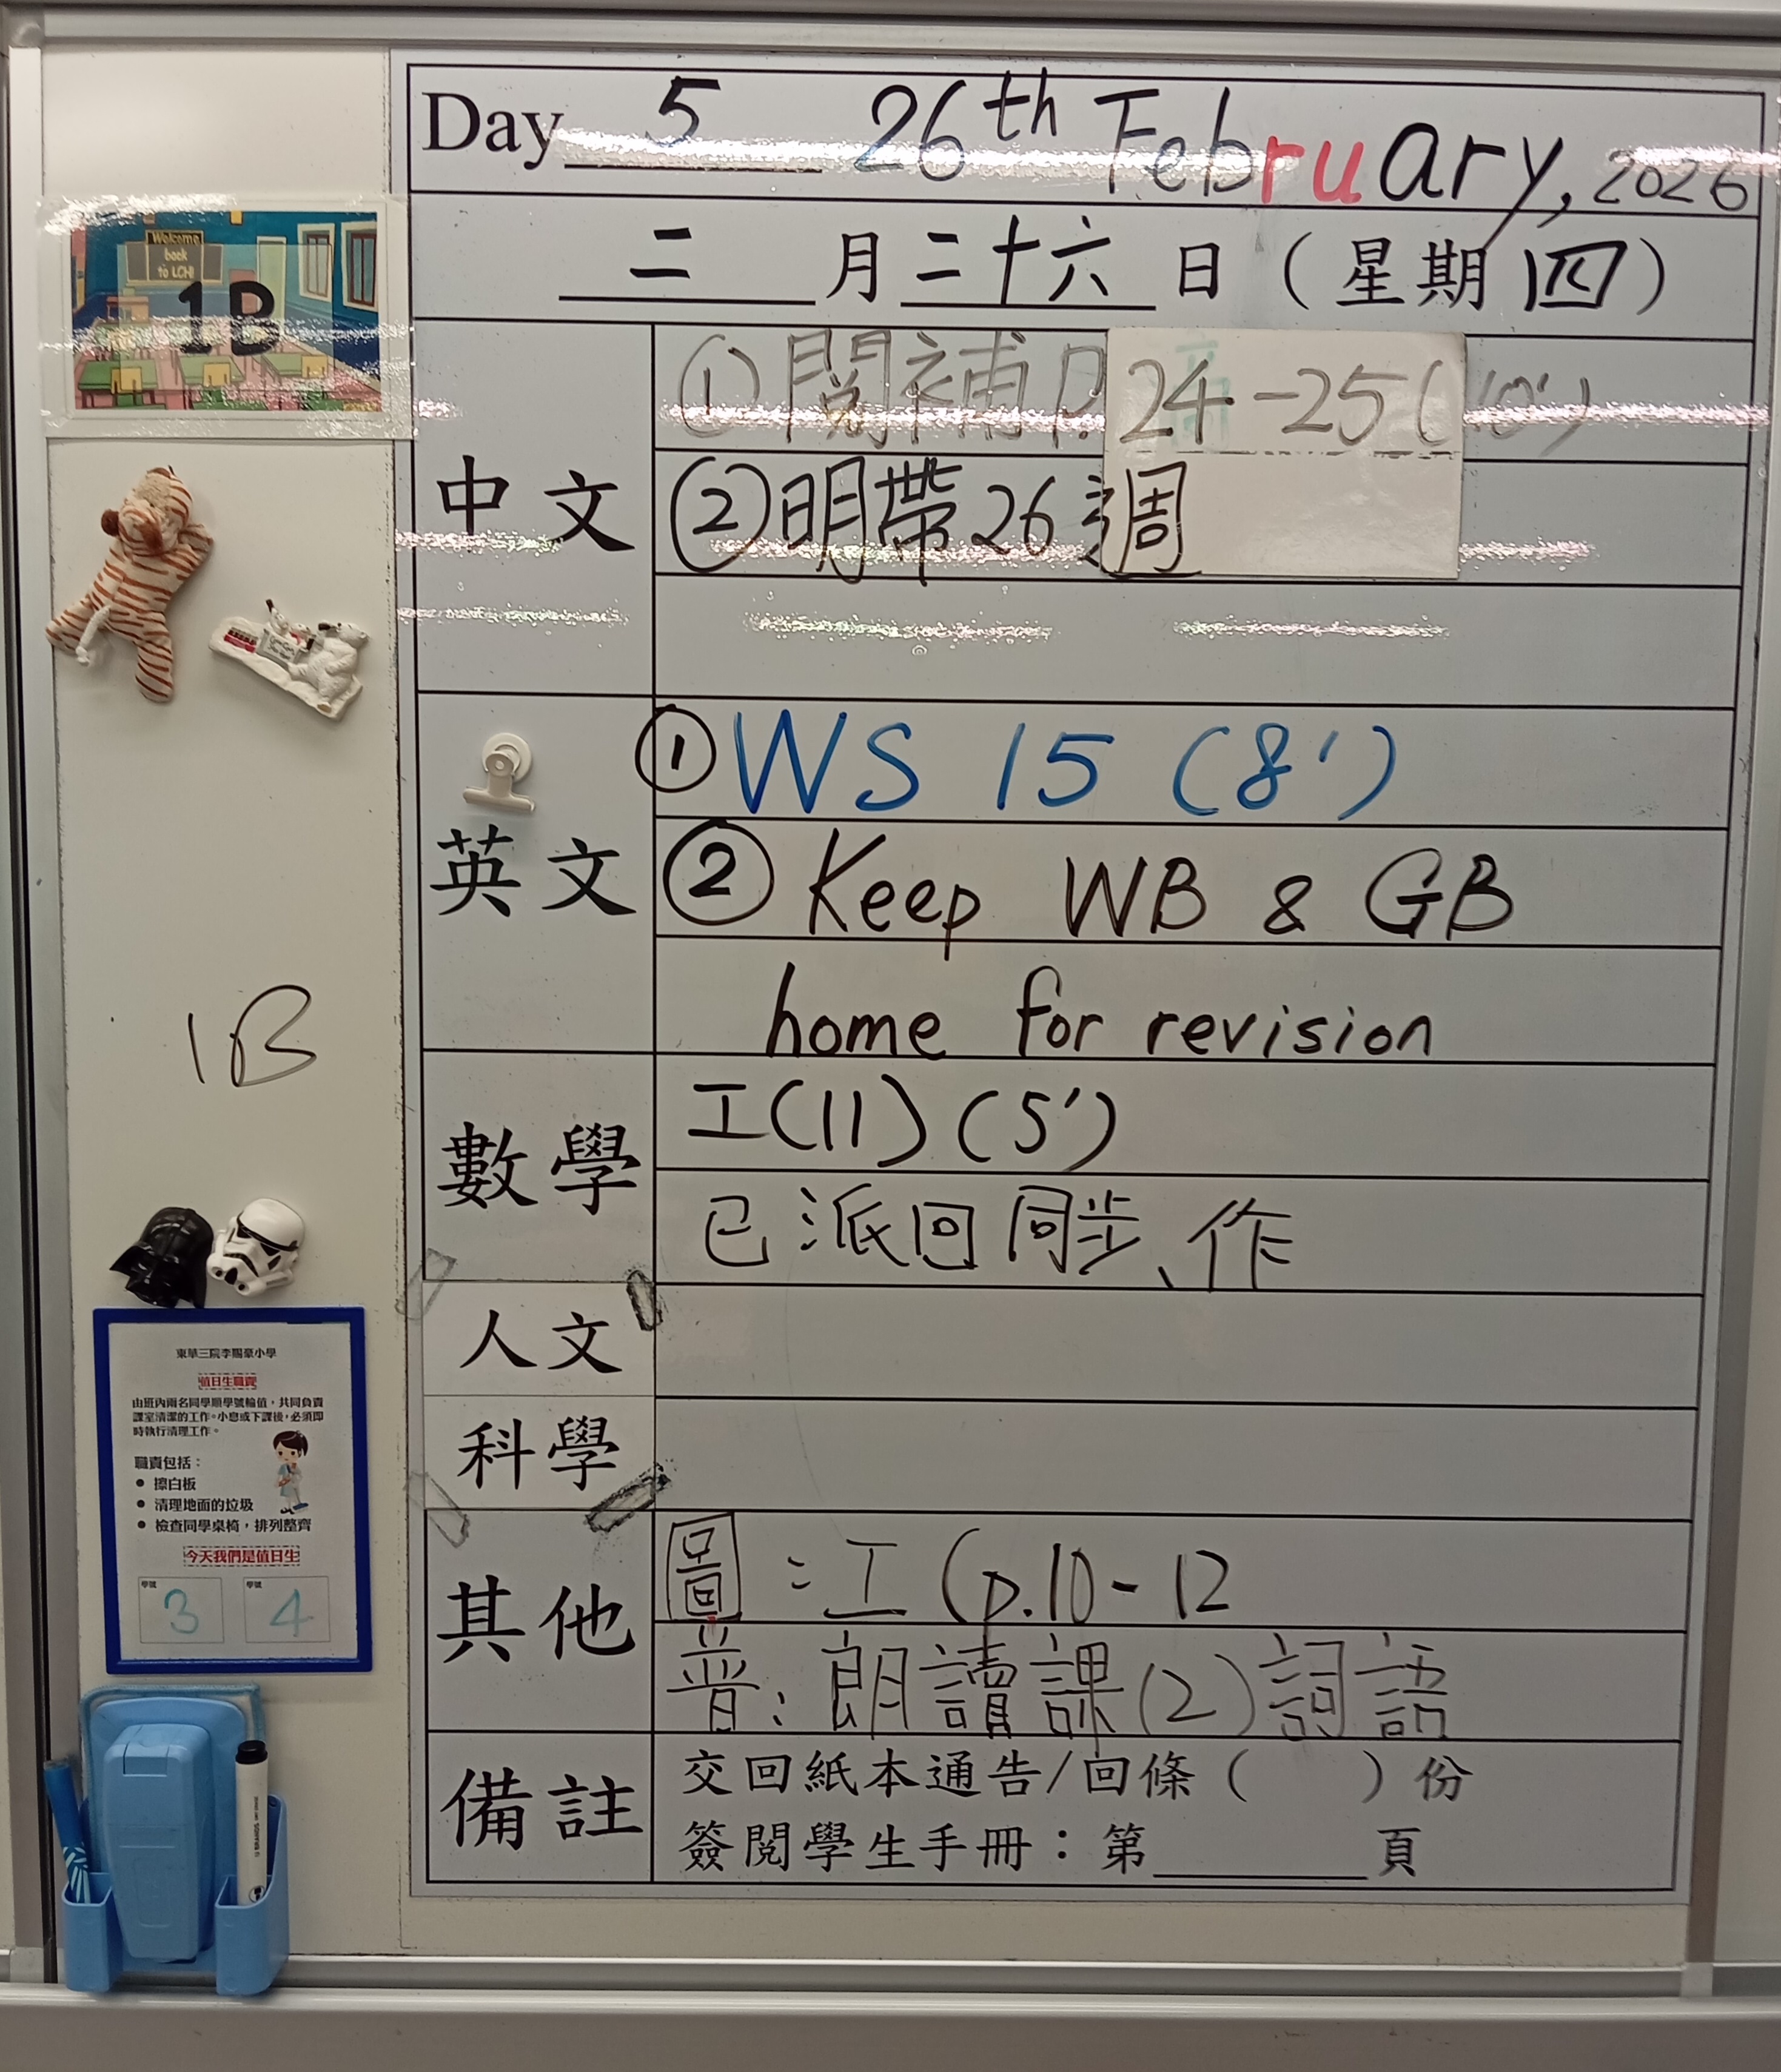 Day 5 26th February, 2026
二 月 二十六 日 (星期 四)
Welcome
back
to LCH!
1B
中文
① 閱補 P. 24-25 (10')
② 明帶 26 週
英文
① WS 15 (8')
② Keep WB & GB
home for revision
1B
數學
工(11) (5')
已派回同步、作
人文
科學
其他
圖:工 (p.10-12
普:朗讀課(2)詞語
備註
交回紙本通告/回條( )份
簽閱學生手冊:第 頁
東華三院李賜豪小學
值日生職責
由班內兩名同學順學號輪值,共同負責
課室清潔的工作。小息或下課後,必須即
時執行清理工作。
職責包括:
● 擦白板
● 清理地面的垃圾
● 檢查同學桌椅,排列整齊
今天我們是值日生
學號 學號
3 4